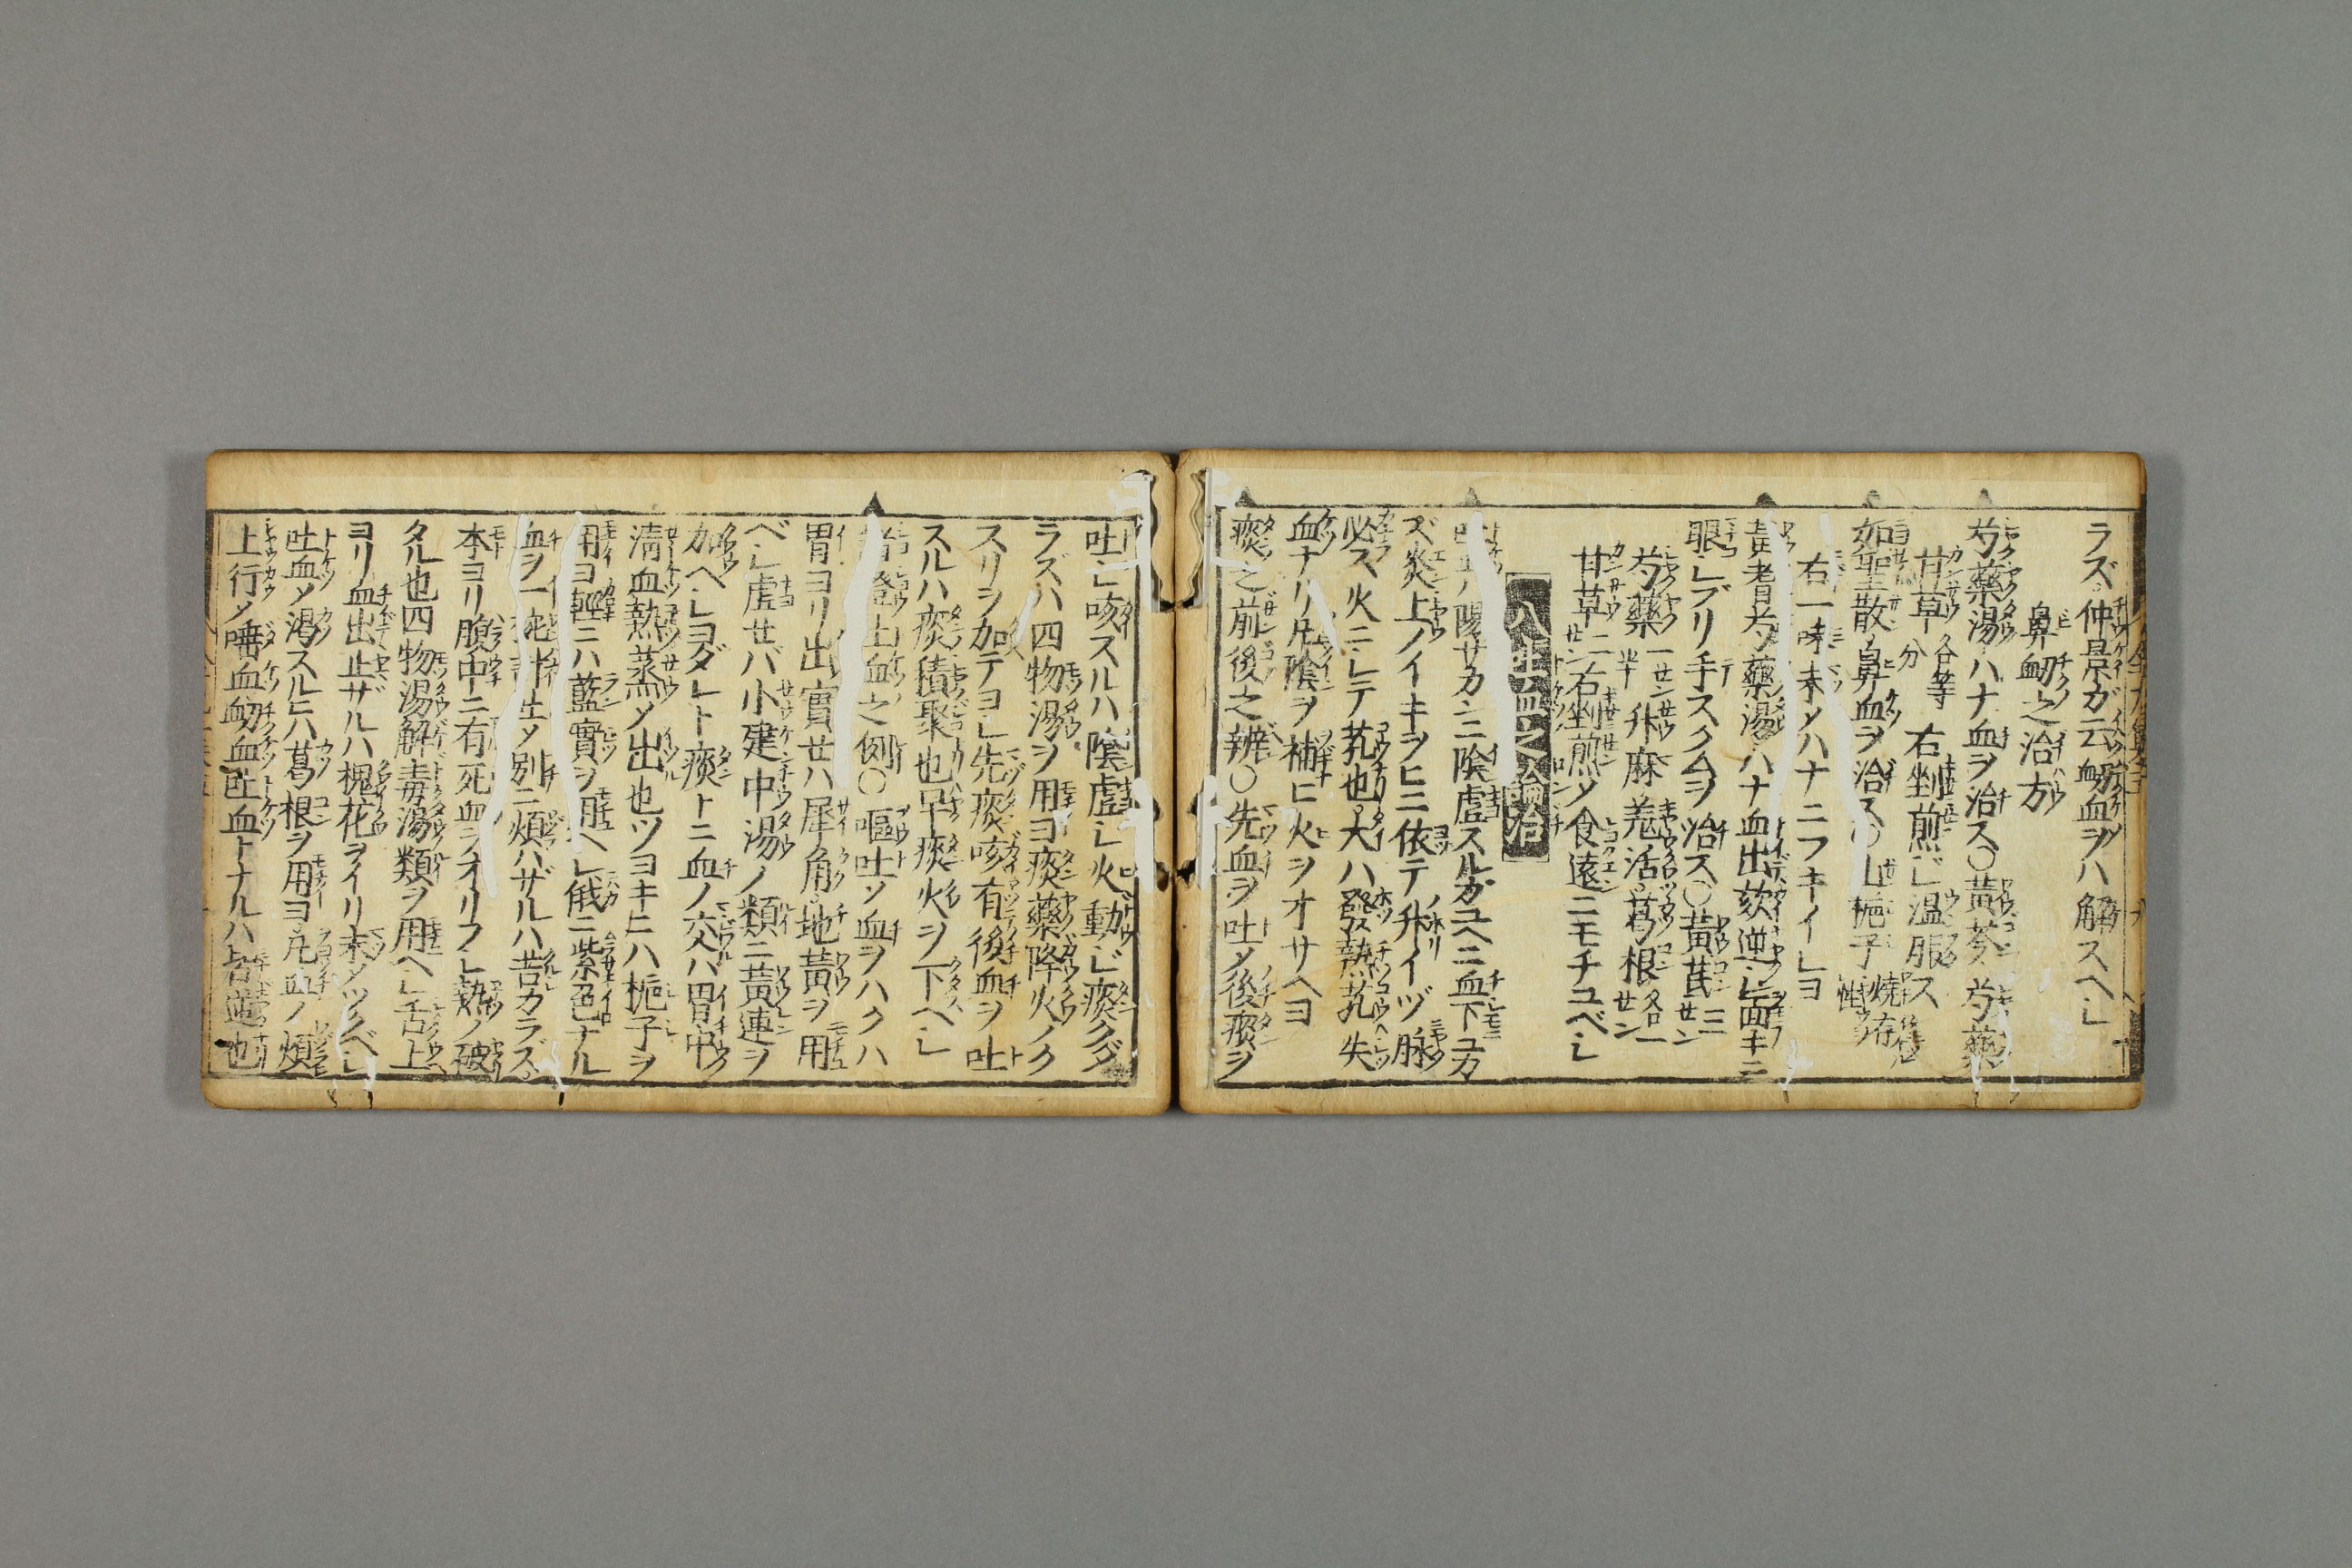 ラズ仲景ガ云衂血ヲハ解スヘシ
鼻衂之治方
芍藥湯ハナ血ヲ治ス〇黄芩芍藥
甘草各等分右剉煎ジ温服ス
如聖散鼻血ヲ治ス〇山梔子燒存性
右一味末メハナニフキイレヨ
芍藥湯ハナ血出欬逆シ面キニ
眼シブリ手スクムヲ治ス〇黄芪三セン
芍藥一セン半升麻羌活葛根各一セン
甘草二セン右剉煎メ食遠ニモチユベシ
八吐血之論治
吐血ハ陽サカンニ陰虚スルガユヘニ血下ユカ
ズ炎上ノイキヲヒニ依テ升イヅ脉
必ス火ニシテ芤也大ハ發熱芤失
血ナリ陰ヲ補ヒ火ヲオサヘヨ
痰之前後之辨〇先血ヲ吐メ後痰ヲ
吐シ咳スルハ陰虚シ火動ジ痰クダ
ラズハ四物湯ヲ用ヨ痰藥降火ノク
スリヲ加テヨシ先痰咳有後血ヲ吐
スルハ痰積聚也早痰火ヲ下ヘシ
吐血之例〇嘔吐ソ血ヲハクハ
胃ヨリ出實セハ犀角地黄ヲ用
ベシ虚セバ小建中湯ノ類ニ黄連ヲ
加ヘシヨダレト痰トニ血ノ交ハ胃中
淸血熱蒸ソ出也ツヨキニハ梔子ヲ
用ヨ輕ニハ藍實ヲ用ヘシ俄ニ紫色ナル
血ヲ一椀斗吐メ別ニ煩ハザルハ苦カラズ
本ヨリ膓中ニ有死血ヲオリフレ熱ノ破
タル也四物湯解毒湯類ヲ用ヘシ舌上
ヨリ血出止ザルハ槐花ヲイリ末メツクベシ
吐血メ渇スルニハ葛根ヲ用ヨ凡血ノ煩
上行メ唾血衂血吐血トナルハ皆逆也